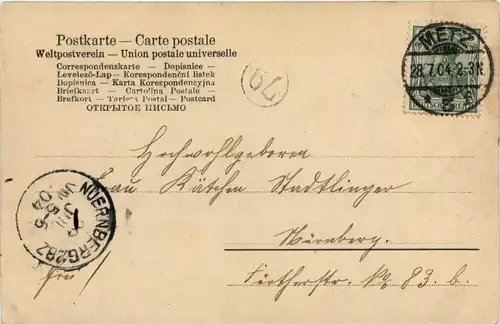 Postkarte — Carte postale
Weltpostverein — Union postale universelle
Correspondenzkarte — Dopisnice —
Levelező-Lap — Korespondenční listek
Dopisnica — Karta Korespondencyjna
Briefkaart — Cartolina Postale —
Brefkort — Tarjeta Postal — Postcard
ОТКРЫТОЕ ПИСЬМО
METZ
28.7.04.2-3N
79
Hochwohlgeboren
Frau Kätchen Stadtlinger
Nürnberg.
Fürtherstr. No 83. b.
NUERNBERG 2BZ